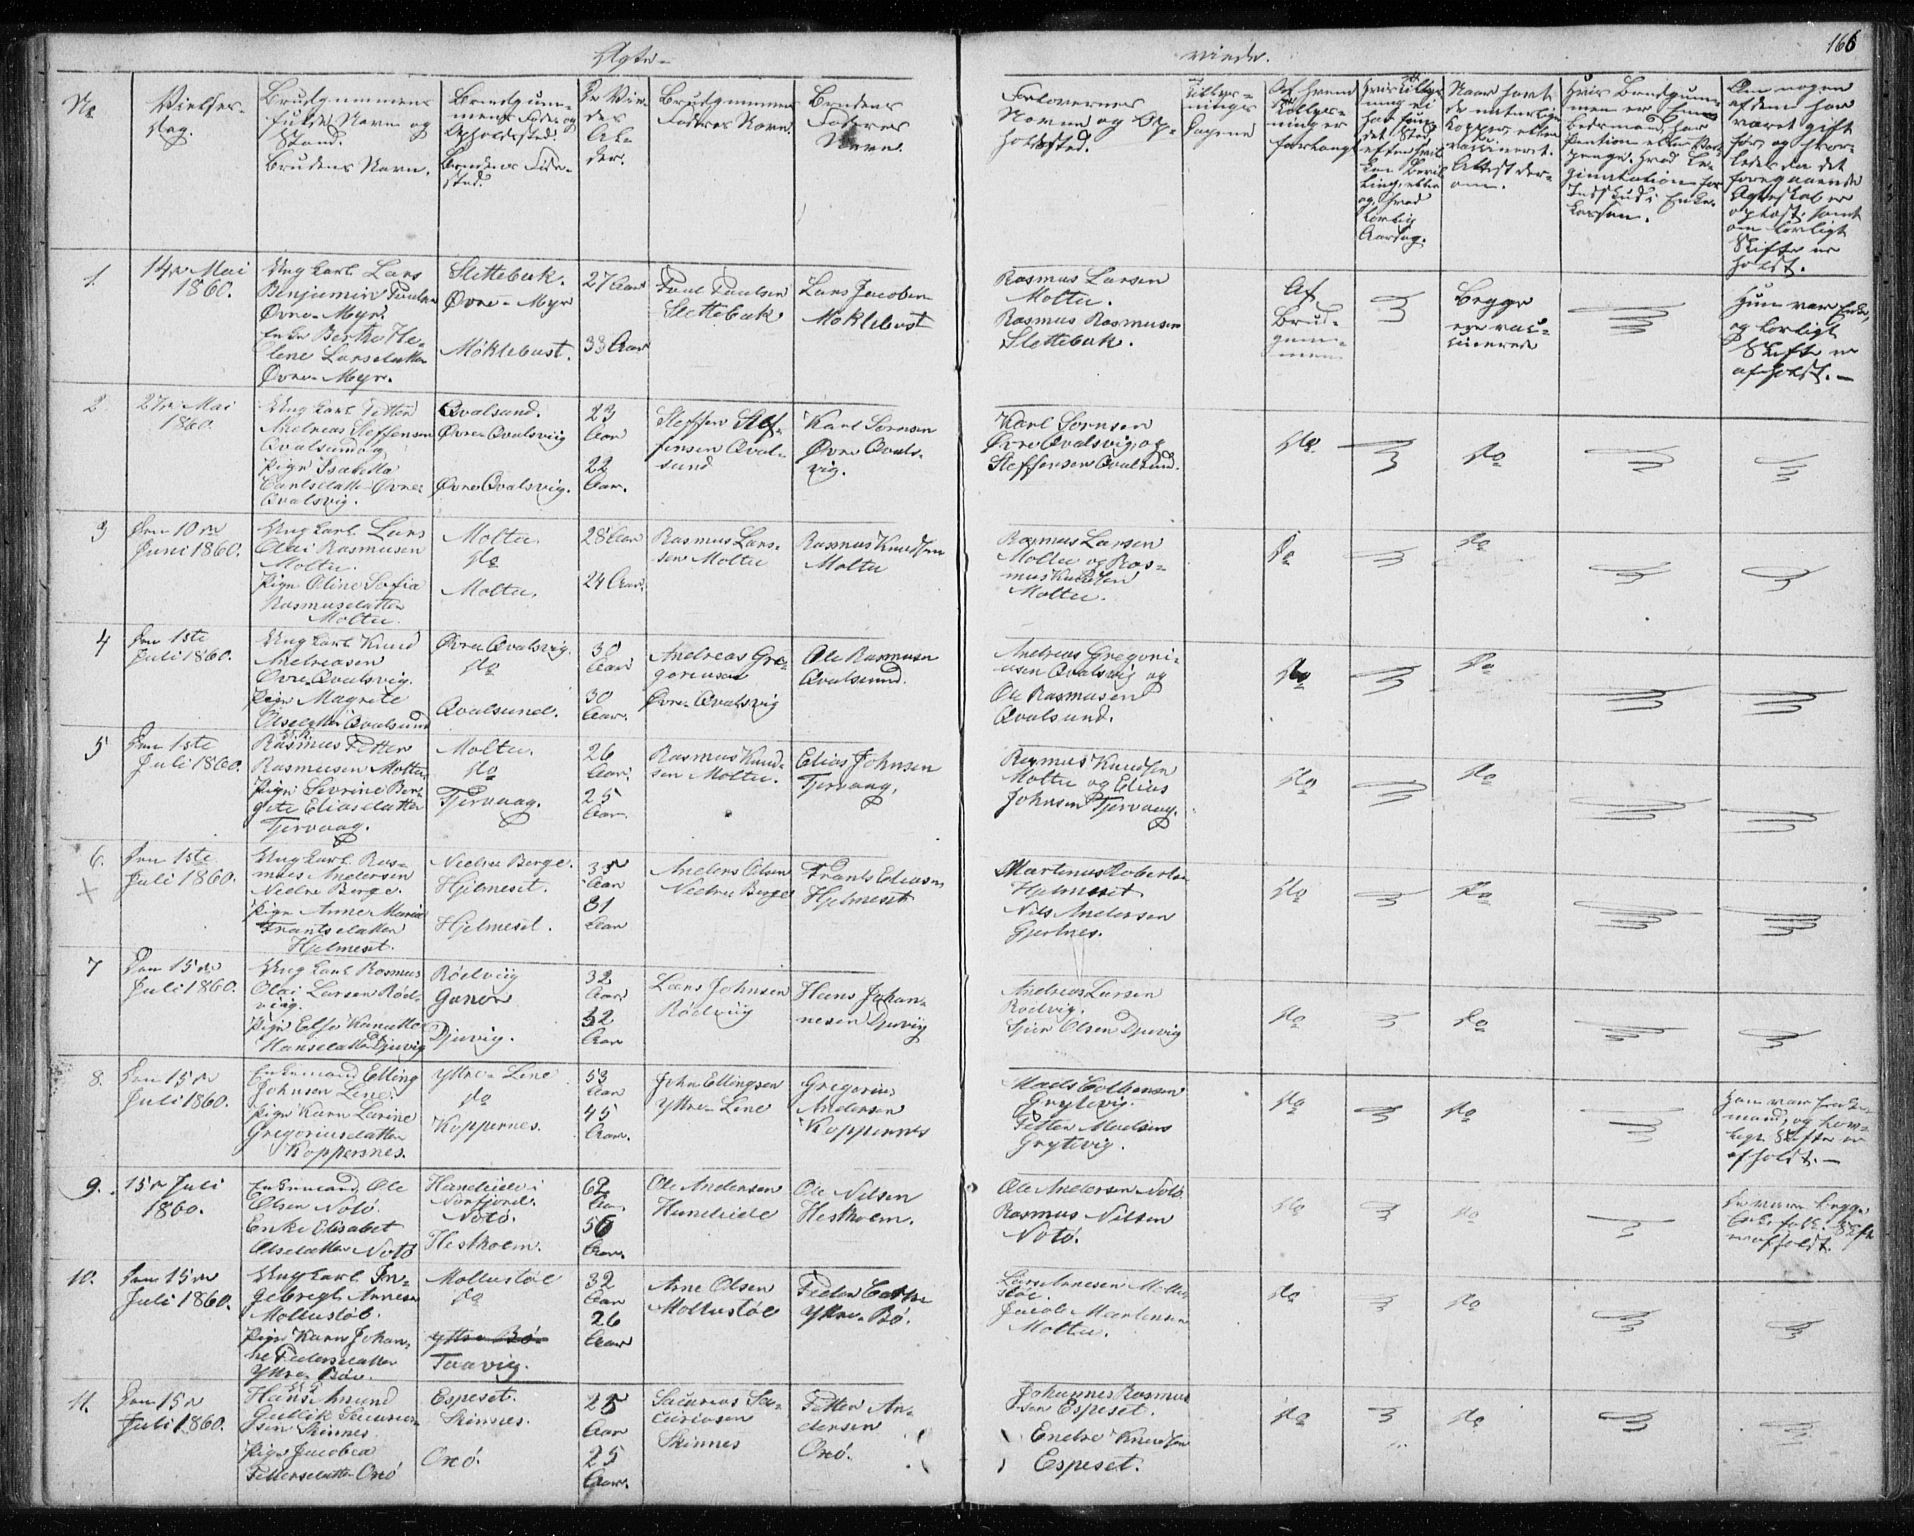 Ægte-
viede.
166
No
Vielses-
dag.
Brudgummens
fulde Navn og
Stand.
Brudens Navn.
Brudgum-
mens Føde- og
Opholdssted.
Brudens Føde-
sted.
De Vie-
des
Al-
der.
Brudgummens
Faders Navn.
Brudens
Faders
Navn.
Forlovernes
Navne og Op-
holdssted.
Tillys-
nings
Dagene
Af hvem
Tillys-
ning er
forlangt
Naar havt
de naturlige
Kopper eller
vaccineret.
Attest der-
om.
1.
14de Mai
1860.
Ungkarl Lars
Benjamin Paulsen
Øvre-Myr.
Enke Berthe He-
lene Larsdatter
Øvre-Myr.
Slettebak.
Øvre-Myr
Møklebust.
27 Aar
33 Aar
Paul Paulsen
Slettebak
Lars Jacobsen
Møklebust
Rasmus Larsen
Moltu.
Rasmus Rasmusen
Slettebak.
Af
Brud-
gum-
men
Begge
ere vac-
cinerede
Hun var Enke,
og lovligt
Skifte er
afholdt.-
2
27de Mai
1860.
Ungkarl Petter
Andreas Steffensen
Qvalsund og
Pige Isabella
Carlsdatter Øvre
Qvalsvig.
Qvalsund.
Øvre Qvalsviig
Øvre Qvalsvig.
23
Aar
22
Aar.
Steffen Stef-
fensen Qval-
sund
Karl Sørnsen
Øvre Qvals-
vig.
Karl Sørnsen
Øvre Qvalsvig, og
Steffensen Qvalsund.
do
do
3
Den 10de
Juni 1860.
Ungkarl Lars
Olai Rasmusen
Moltu.
Pige Oline Sofia
Rasmusdatter
Moltu.
Moltu.
do
Moltu.
28 Aar
24 Aar.
Rasmus Lars-
sen Moltu
Rasmus Knudsen
Moltu
Rasmus Larsen
Moltu og Ras-
mus Knudsen
Moltu.
do
do
4
Den 1ste
Juli 1860.
Ungkarl Knud
Andreasen
Øvre Qvalsvig.
Pige Magrete
Olsdatter Qvalsund
Øvre Qvalsvig.
do
Qvalsund.
30
Aar
30
Aar.
Andreas Gre-
goriusen
Øvre Qvalsvig
Ole Rasmusen
Qvalsund.
Andreas Gregori-
usen Qvalsvig og
Ole Rasmusen
Qvalsund.
do
do
5
Den 1ste
Juli 1860.
Rasmus Petter
Rasmusen Moltu.
Pige Sevrine Ber-
gite Eliasdatter
Tjervaag.
Moltu.
do
Tjervaag.
26
Aar.
25
Aar.
Rasmus Knud-
sen Moltu.
Elias Johnsen
Tjervaag.
Rasmus Knudsen
Moltu og Elias
Johnsen Tjervaag.
do
do
6.
Den 1ste
Juli 1860.
Ungkarl Ras-
mus Andersen
Nedre Berge.
Pige Anne Maria
Frantsdatter
Hjelmeset.
Nedre Berge.
Hjelmeset.
Hjelmeset.
35
Aar
31
Aar
Anders Olsen
Nedre Berge
Frants Eliasen
Hjelmeset
Martinus Robertsen
Hjelmeset
Nils Andersen
Gjertnes.
do
do
7
Den 15de
Juli 1860.
Ungkarl Rasmus
Olai Larsen Rød-
viig.
Pige Else
Hansdatter Djuvig
Rødviig
Djuvig.
32
Aar
32
Aar
Lars Johnsen
Rødviig
Hans Johan-
nesen Djuvig
Andreas Larsen
Rødvig.
Olsen Djuvig
do
do
8.
Den 15de
Juli 1860.
Enkemand Elling
Johnsen Leine.
Pige Karn Larine
Gregoriusdatter
Koppernes.
Yttre-Leine
do
Koppernes.
53
Aar
45
Aar.
John Ellingsen
Yttre-Leine
Gregorius
Andersen
Koppernes
Mads Colbensen
Grytevig.
Petter Madsens
Grytevig.
do
do
Han var Enke-
mand, og lov-
ligt Skifte er
afholdt.-
9.
15de Juli
1860.
Enkemand Ole
Olsen Notø.
Enke Elisabet
Olsdatter Notø
Hundeide i
Norfjord.
Notø.
Hestholm.
62
Aar.
56
Aar.
Ole Andersen
Hundeide
Ole Nilsen
Hestholm.
Ole Andersen Notø.
Rasmus Nilsen
Notø.
do
do
De vare begge
Enkefolk. Skifte
er afholdt.
10.
Den 15de
Juli 1860.
Ungkarl In-
gebregt Arnesen
Moltustøl.
Pige Karn Johan-
ne Pedersdatter
Yttre Bø.
Moltustøl
do
Yttre Bø.
Taavig.
32
Aar
26
Aar
Arne Olsen
Moltustøl
Yttre-Bø.
Lars Arnesen Moltu-
støl.
Jacob Martinusen
Moltu.
do
do
11.
Den 15de
Juli 1860.
Hans Amund
Gullik
Skinnes
Pige Jacobea
Pettersdatter Onø
Espeset.
Skinnes.
Onø.
25
Aar
25
Aar.
Sacarias Sa-
cariasen
Skinnes
Petter An-
dersen
Onø.
Johannes Rasmus-
sen Espeset.
Endre Knudsen
Espeset.
do
do